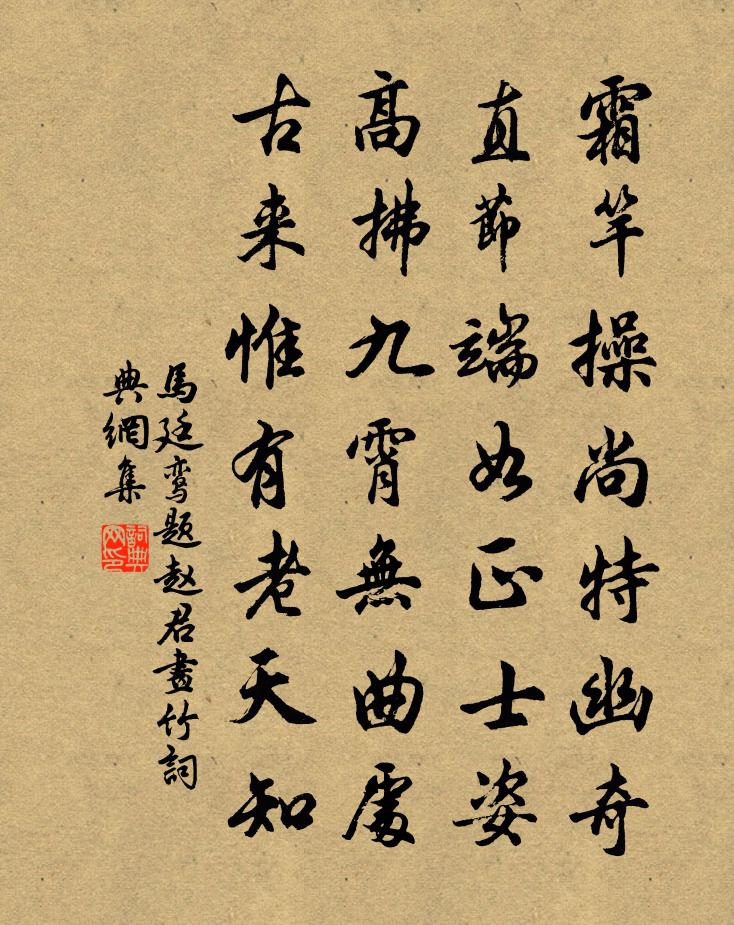 霜竿操尚特幽奇
直節端如正士姿
高拂九霄無曲處
古来惟有老天知
馬廷鸾题赵君畫竹詞
典網集
詞典
网印